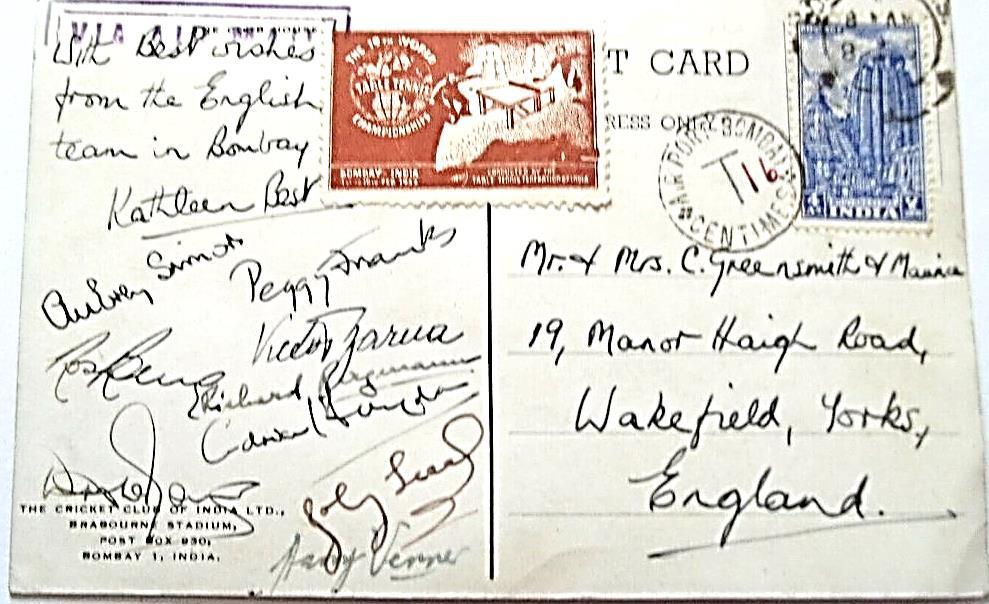 VIA AIR
With Best wishes
from the English
team in Bombay
Kathleen Best
Aubrey Simons
Peggy Franks
Victor Barna
Richard Bergmann
Harry Venner
THE CRICKET CLUB OF INDIA LTD.,
BRABOURNE STADIUM,
POST BOX 930,
BOMBAY 1, INDIA.
THE 19TH WORLD
TABLE TENNIS
CHAMPIONSHIPS
BOMBAY, INDIA
CONDUCTED BY THE
TABLE TENNIS FEDERATION OF INDIA
T CARD
RESS ONLY
AIR PORT BOMBAY
T 16
CENTIMES
8 AM
INDIA
Mr. & Mrs. C. Greensmith & Maurice
19, Manor Haigh Road,
Wakefield, Yorks,
England.